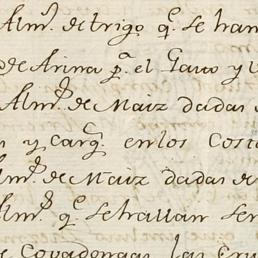 Alm.s de trigo q.e se han
de Arina p.a el Gavo y
Alm.s de Maiz dadas
y carg.s en los Cost
Alm.s de Maiz dadas de
Alm.s q.e se hallan ser
de Covadongas las